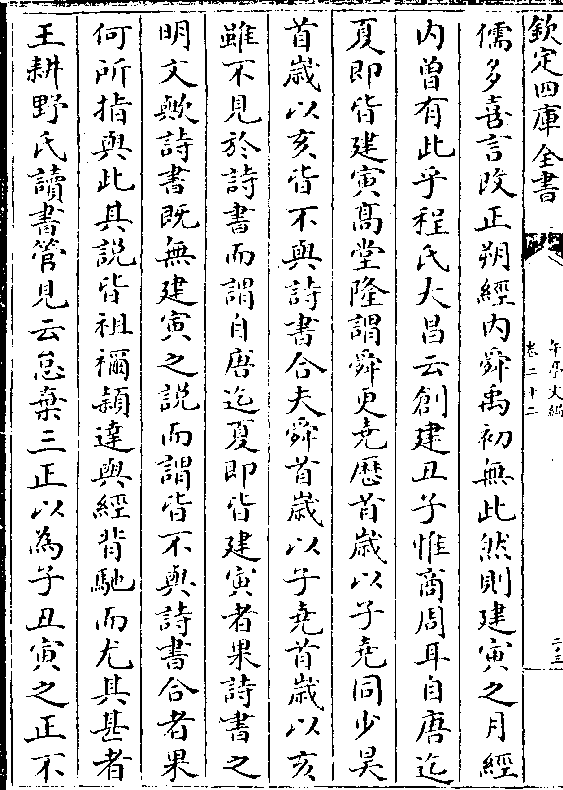 欽定四庫全書
午亭文編
卷二十二
二三
儒多喜言改正朔經內舜禹初無此然則建寅之月經
內曽有此乎程氏大昌云創建丑子惟商周耳自唐迄
夏即皆建寅髙堂隆謂舜更堯厯首歲以子堯同少昊
首歲以亥皆不與詩書合夫舜首歲以子堯首歲以亥
雖不見於詩書而謂自唐迄夏即皆建寅者果詩書之
明文歟詩書既無建寅之説而謂皆不與詩書合者果
何所指與此其説皆祖禰穎達與經背馳而尤其甚者
王耕野氏讀書管見云怠棄三正以為子丑寅之正不